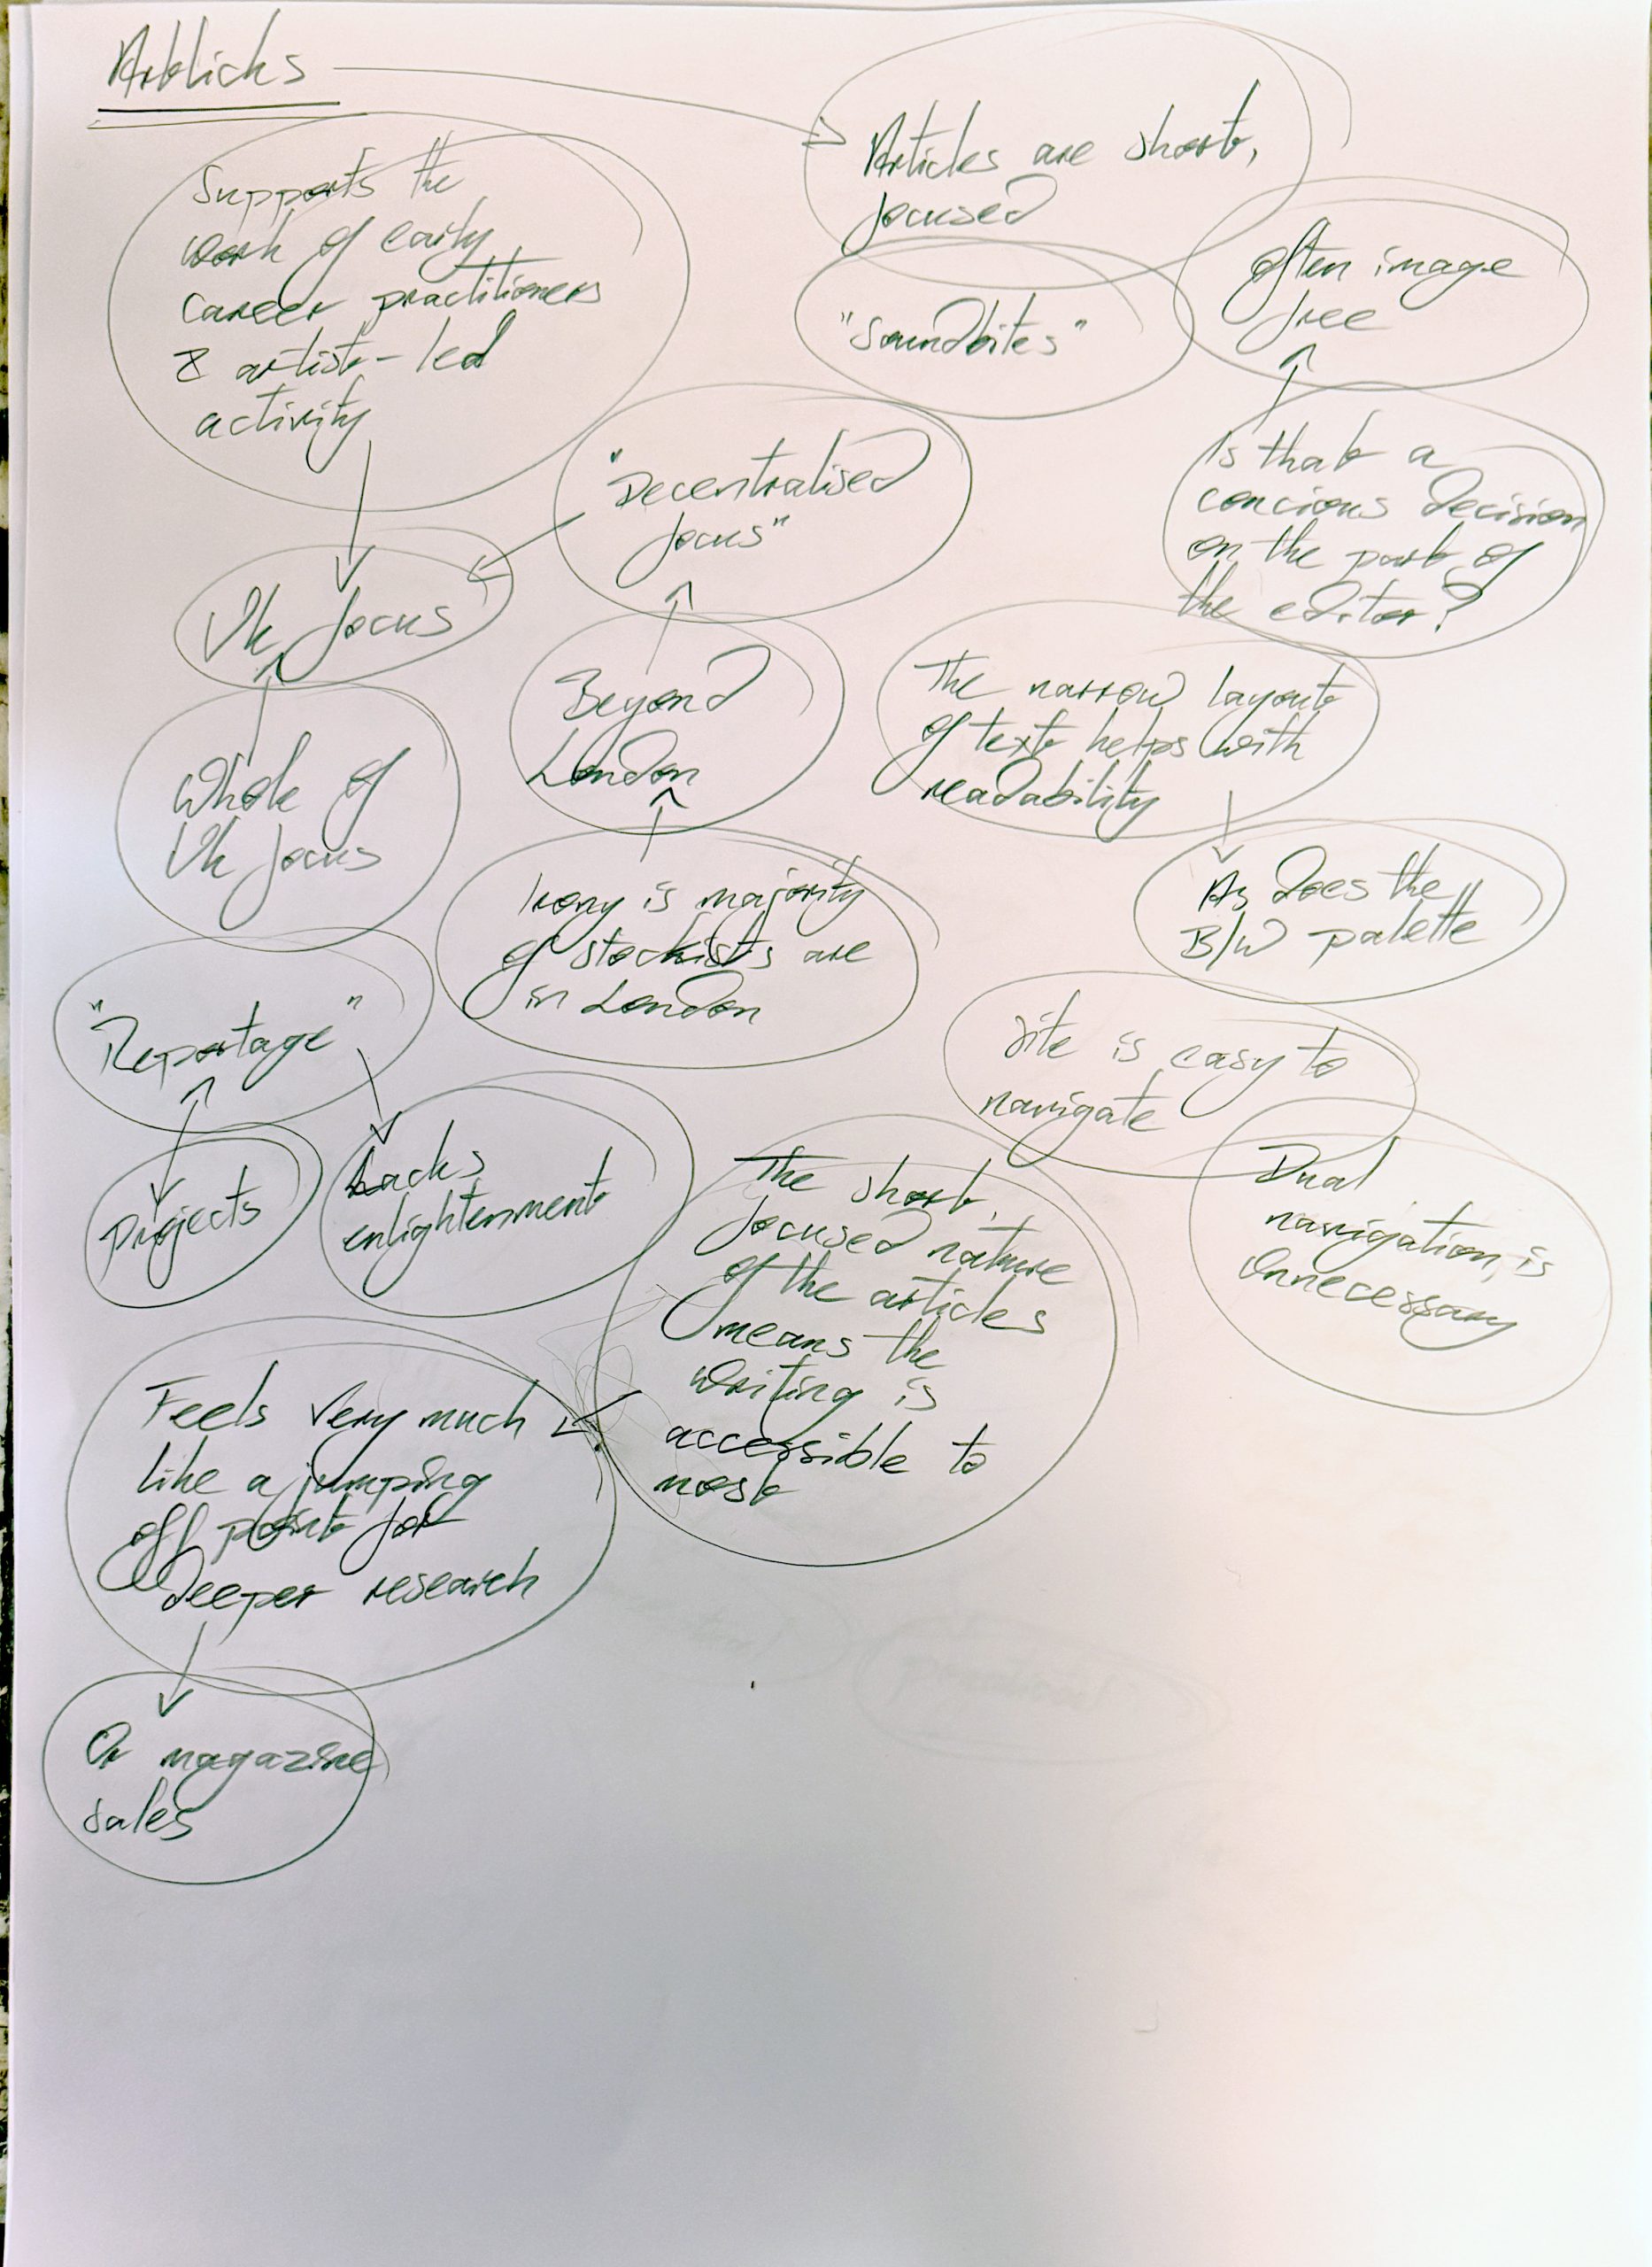 Artlicks
Articles are short,
focused
"Soundbites"
often image
free
Is that a
concious decision
on the part of
the editor?
Supports the
work of early
career practitioners
& artist-led
activity
"Decentralised
focus"
Uk focus
Beyond
London
Whole of
Uk focus
Irony is majority
of stockists are
in London
The narrow layout
of text helps with
readability
As does the
B/W palette
Site is easy to
navigate
Dual
navigation is
unnecessary
"Reportage"
Projects
Lacks
enlightenment
The short,
focused nature
of the articles
means the
writing is
accessible to
most
Feels very much
like a jumping
off point for
deeper research
Or magazine
sales